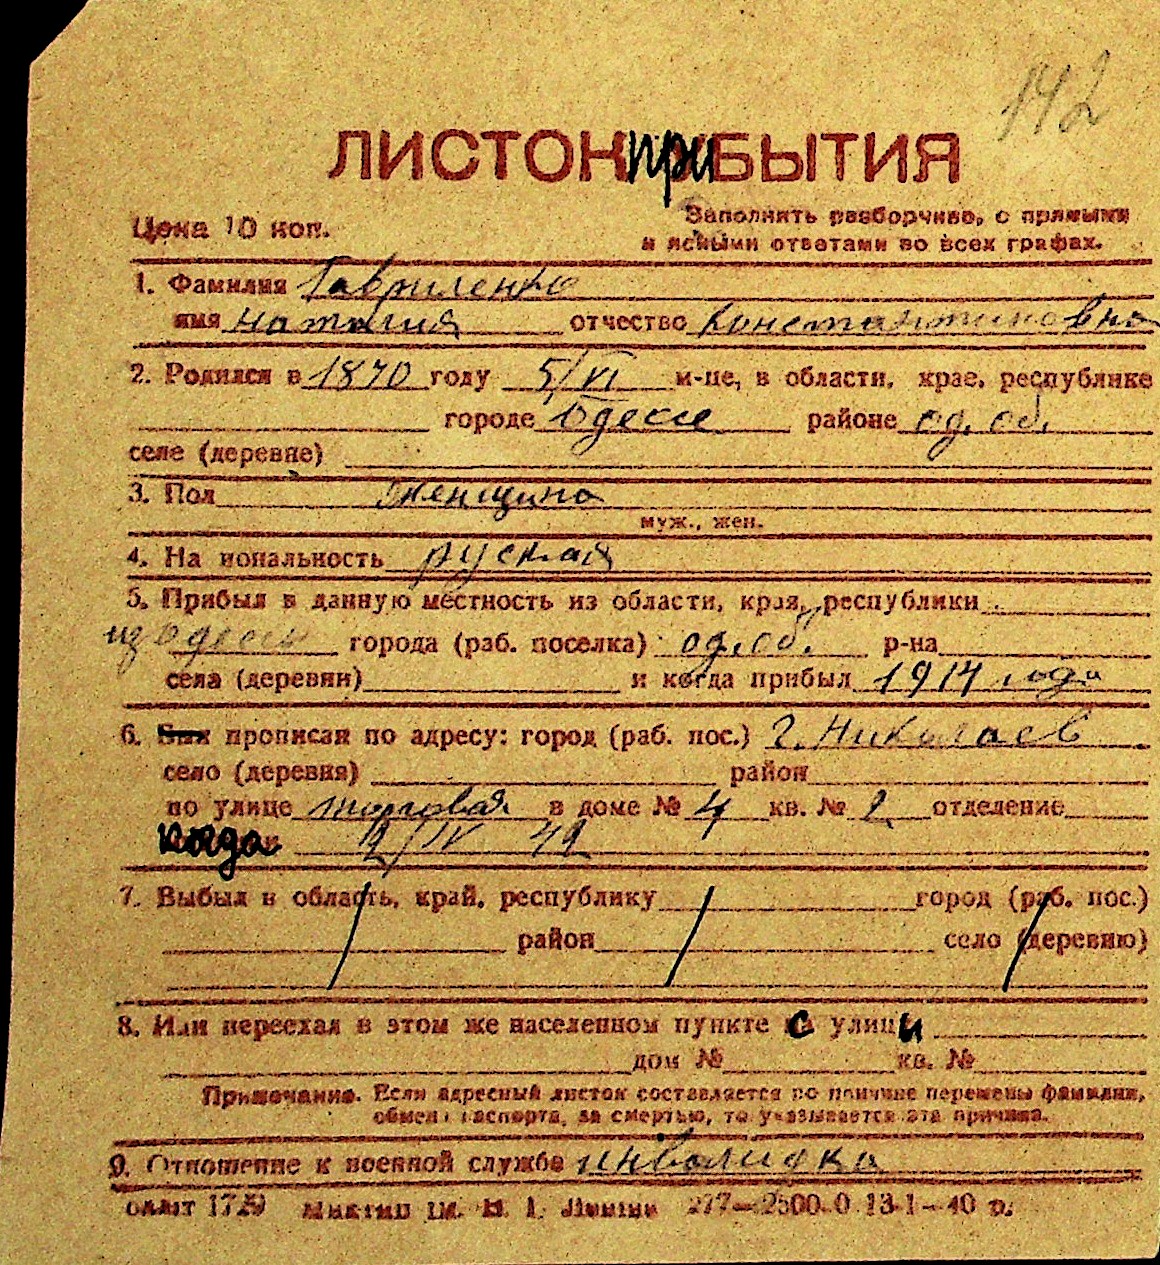 142
ЛИСТОК ПРИБЫТИЯ
Цена 10 коп.
Заполнять разборчиво, с прямыми
и ясными ответами во всех графах.
1. Фамилия Гавриленко
имя Наталия отчество Константиновна
2. Родился в 1870 году 5/VI м-це, в области, крае, республике
городе Одессе районе од. об.
селе (деревне)
3. Пол женщина
муж., жен.
4. На иональность руская
5. Прибыл в данную местность из области, края, республики
из Одессы города (раб. поселка) од. об. р-на
села (деревни) и когда прибыл 1914 года
6. Был прописан по адресу: город (раб. пос.) г. Николаев
село (деревня) район
по улице торговая в доме № 4 кв. № 2 отделение
когда 12/IV 42
7. Выбыл в область, край, республику город (раб. пос.)
район село (деревню)
8. Или переехал в этом же населенном пункте с улицы
дом № кв. №
Примечание. Если адресный листок составляется по причине перемены фамилии,
обмена паспорта, за смертью, то указывается эта причина.
9. Отношение к военной службе инвалидка
277—2500.0 13-1—40 р.